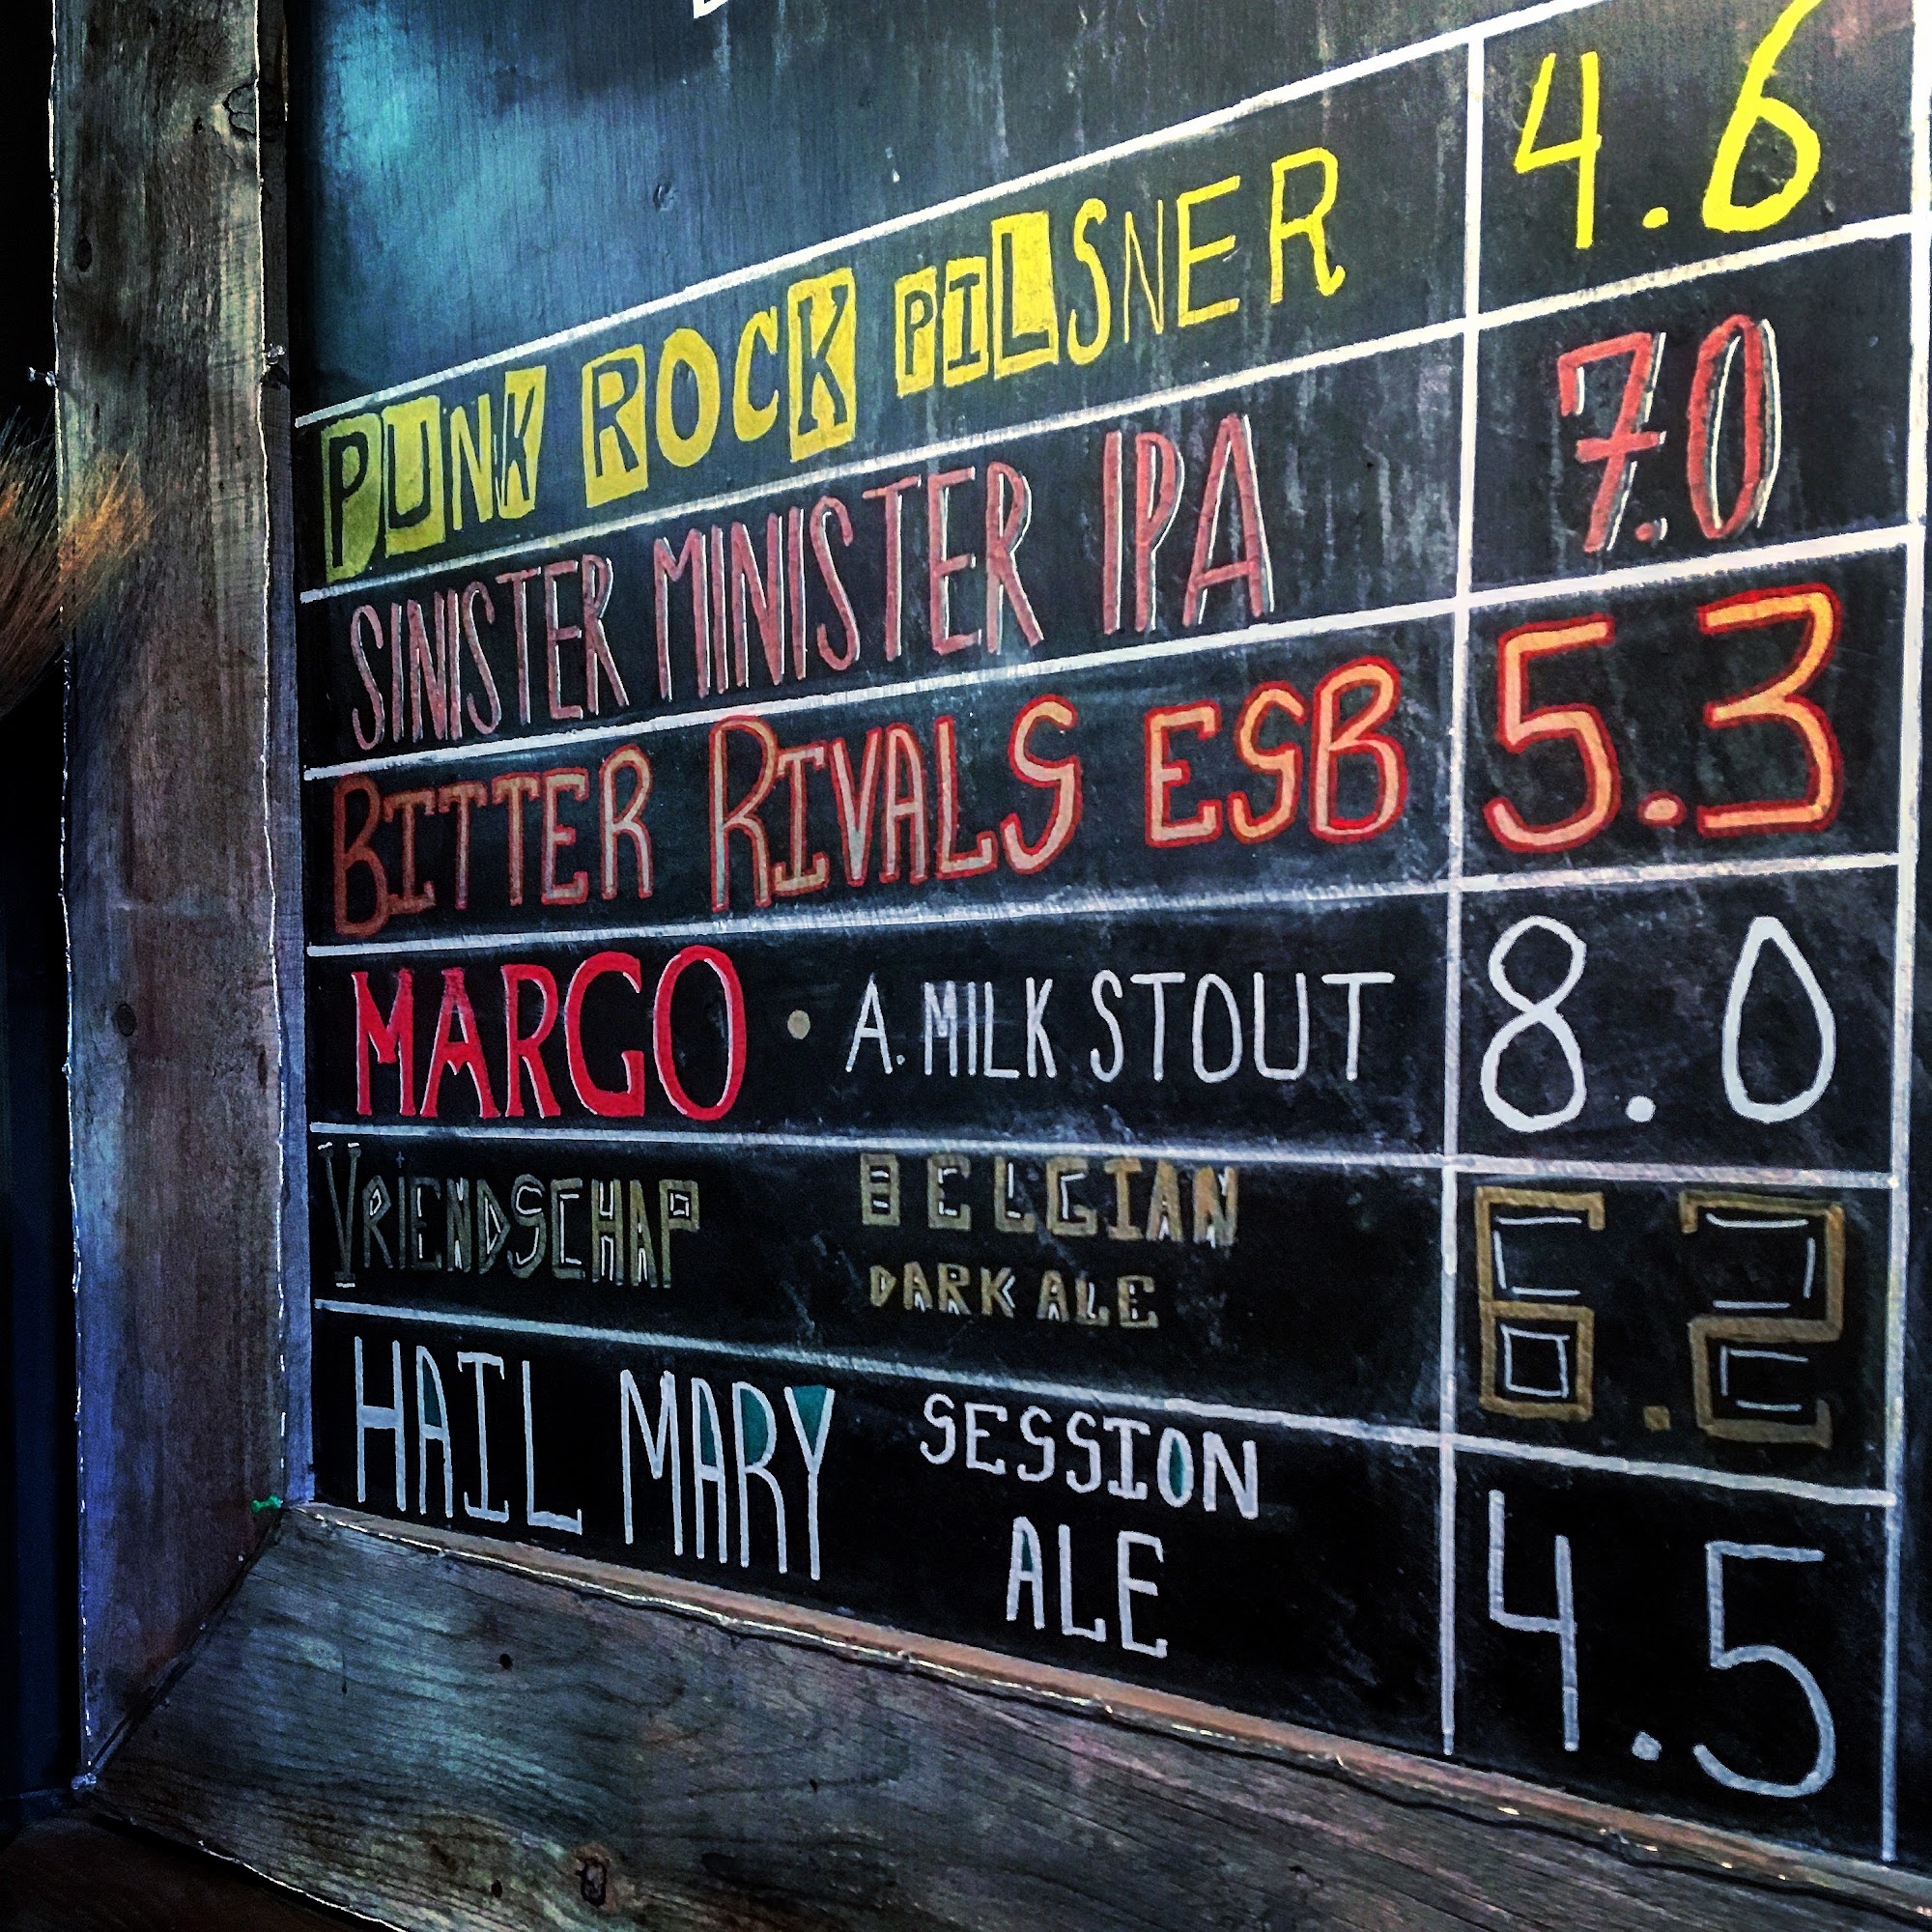 PUNK ROCK PILSNER 4.6
SINISTER MINISTER IPA 7.0
BITTER RIVALS ESB 5.3
MARGO • A. MILK STOUT 8.0
VRIENDSCHAP BELGIAN 6.2
DARK ALE
HAIL MARY SESSION 4.5
ALE